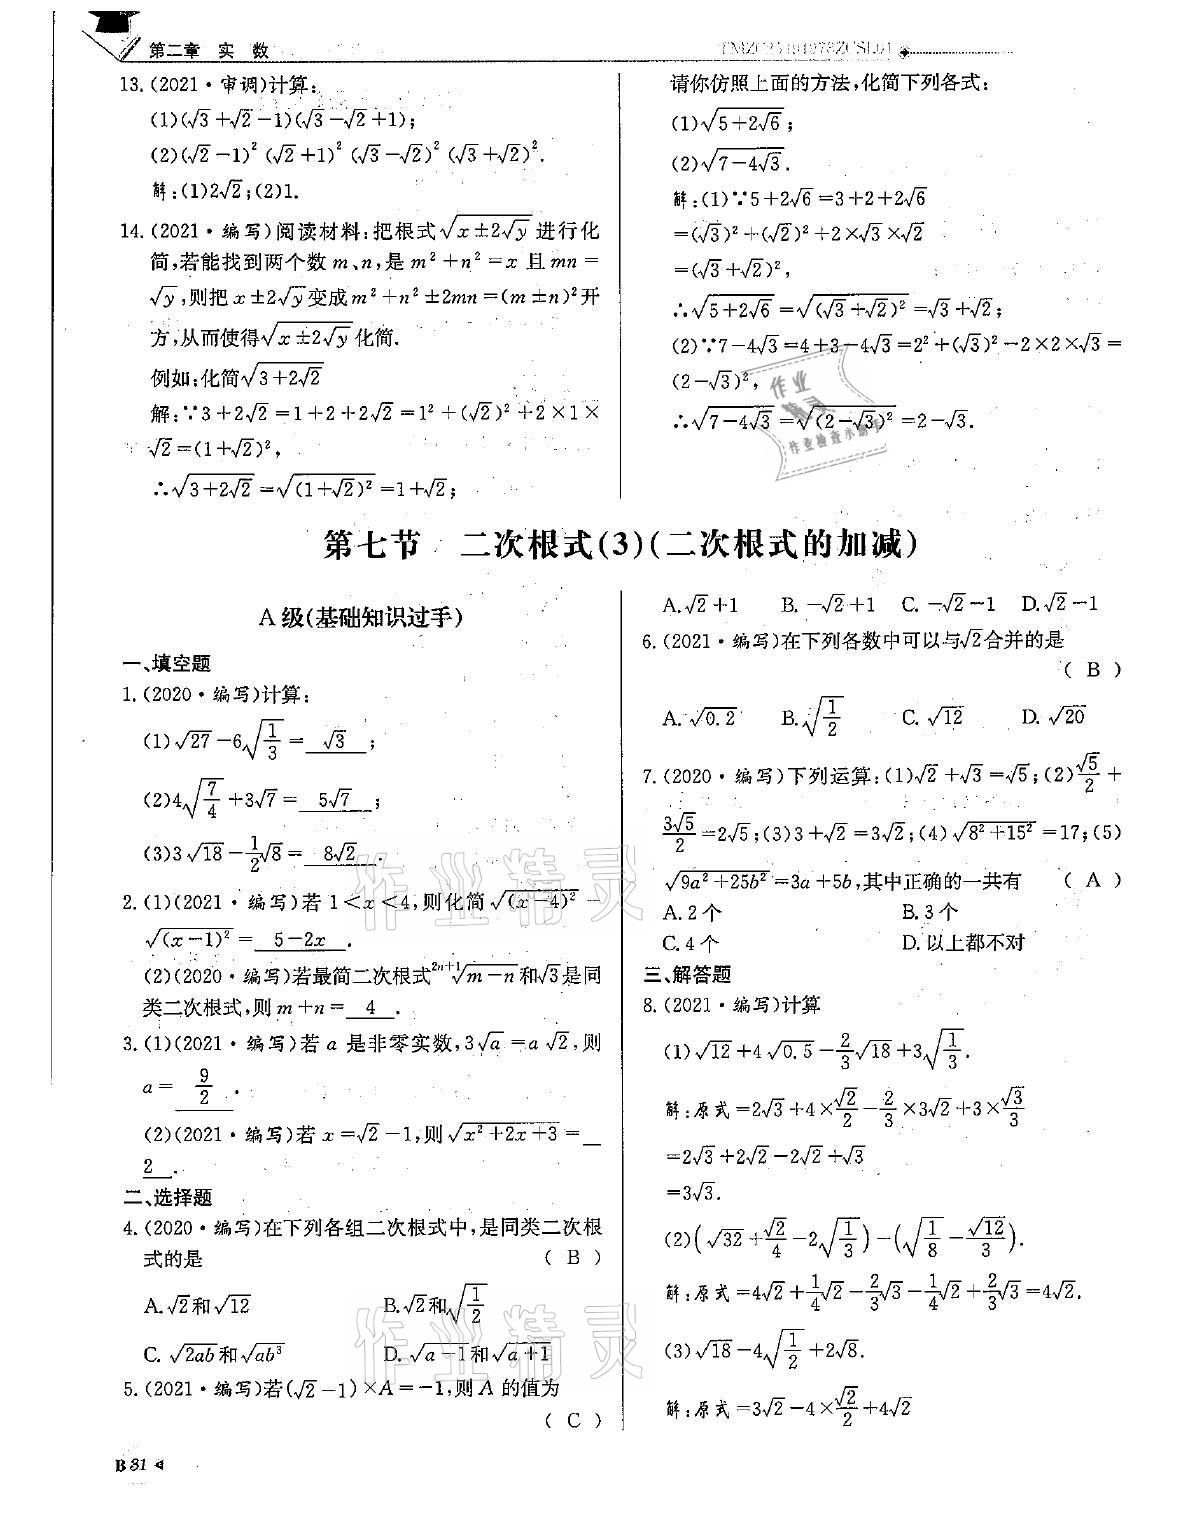 第二章 实 数
13.(2021·审调)计算:
(1)(√3+√2-1)(√3-√2+1);
(2)(√2-1)² (√2+1)² (√3-√2)² (√3+√2)².
解:(1)2√2;(2)1.
14.(2021·编写)阅读材料:把根式√(x±2√y)进行化
简,若能找到两个数 m、n,是 m²+n²=x 且 mn=
√y,则把 x±2√y变成 m²+n²±2mn=(m±n)²开
方,从而使得√(x±2√y)化简.
例如:化简√(3+2√2)
解:∵3+2√2=1+2+2√2=1²+(√2)²+2×1×
√2=(1+√2)²,
∴√(3+2√2)=√((1+√2)²)=1+√2;
请你仿照上面的方法,化简下列各式:
(1)√(5+2√6);
(2)√(7-4√3).
解:(1)∵5+2√6=3+2+2√6
=(√3)²+(√2)²+2×√3×√2
=(√3+√2)²,
∴√(5+2√6)=√((√3+√2)²)=√3+√2;
(2)∵7-4√3=4+3-4√3=2²+(√3)²-2×2×√3=
(2-√3)²,
∴√(7-4√3)=√((2-√3)²)=2-√3.
作业
精灵
作业检查小助手
第七节 二次根式(3)(二次根式的加减)
A 级(基础知识过手)
一、填空题
1.(2020·编写)计算:
(1)√27-6√(1/3)= √3 ;
(2)4√(7/4)+3√7= 5√7 ;
(3)3√18-1/2√8= 8√2 .
2.(1)(2021·编写)若 1<x<4,则化简√((x-4)²)-
√((x-1)²)= 5-2x .
(2)(2020·编写)若最简二次根式 ²ⁿ⁺¹√(m-n)和√3是同
类二次根式,则 m+n= 4 .
3.(1)(2021·编写)若 a 是非零实数,3√a=a√2,则
a= 9/2 .
(2)(2021·编写)若 x=√2-1,则√(x²+2x+3)=
2 .
二、选择题
4.(2020·编写)在下列各组二次根式中,是同类二次根
式的是 ( B )
A.√2和√12 B.√2和√(1/2)
C.√(2ab)和√(ab³) D.√(a-1)和√(a+1)
5.(2021·编写)若(√2-1)×A=-1,则 A 的值为
( C )
A.√2+1 B.-√2+1 C.-√2-1 D.√2-1
6.(2021·编写)在下列各数中可以与√2合并的是
( B )
A.√0.2 B.√(1/2) C.√12 D.√20
7.(2020·编写)下列运算:(1)√2+√3=√5;(2)√5/2+
3√5/2=2√5;(3)3+√2=3√2;(4)√(8²+15²)=17;(5)
√(9a²+25b²)=3a+5b,其中正确的一共有 ( A )
A.2个 B.3个
C.4个 D.以上都不对
三、解答题
8.(2021·编写)计算
(1)√12+4√0.5-2/3√18+3√(1/3).
解:原式=2√3+4×√2/2-2/3×3√2+3×√3/3
=2√3+2√2-2√2+√3
=3√3.
(2)(√32+√2/4-2√(1/3))-(√(1/8)-√12/3).
解:原式=4√2+1/4√2-2/3√3-1/4√2+2/3√3=4√2.
(3)√18-4√(1/2)+2√8.
解:原式=3√2-4×√2/2+4√2
作业精灵
作业精灵
B 31